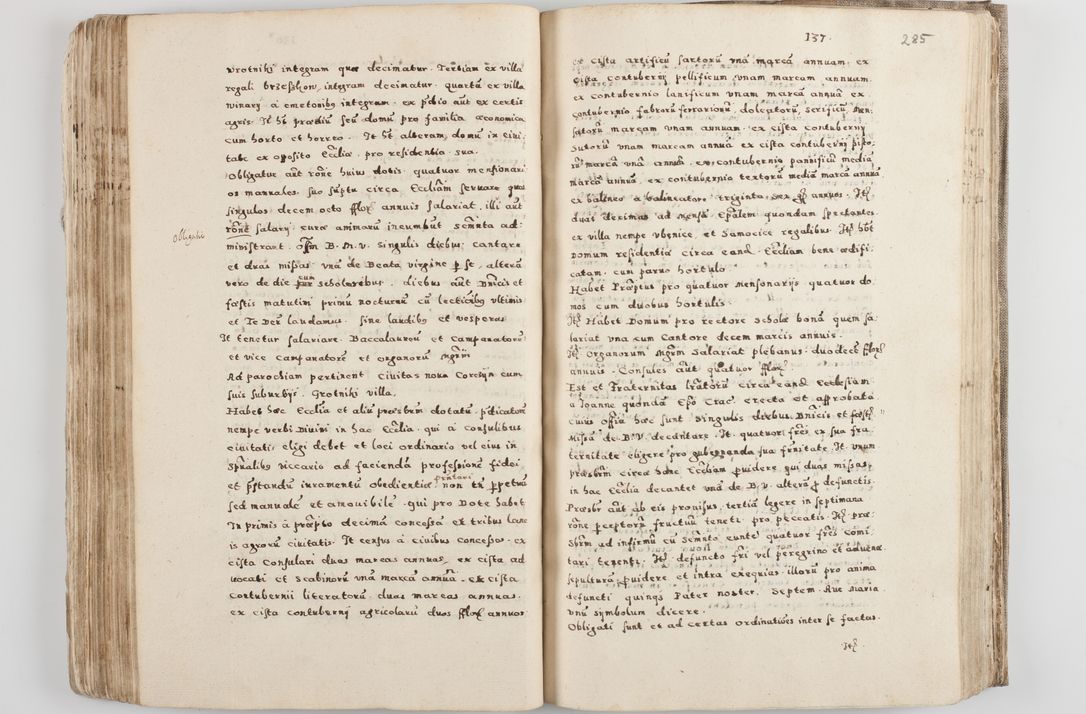 wrotniki integram quæ decimatur. Tertiam ex villa
regali brzeskow, integram decimatur. quartã ex villa
winary à cmetonibꝰ integram. ex p̃dio aũt ex certis
agris. Jt ht̃ prædiũ seũ domũ pro familia œconomica
cum horto et horreo. Jt ht̃ alteram domũ in ciui
tate ex oposito Ecc̃liæ pro residentia sua.
Obligatur aũt rõne huius dotis quatuor mensionari
os manuales suo sũptu circa Eccl̃iam seruare quos
singulos decem octo fflor̃ annuis salariat. illi aũt
rõne salarÿ curæ animarũ incumbũt sem̃ta ad
Obligatio
ministrant. Offm̃ B. M. V. singulis diebus cantare
et duas missas vnã de Beata virgine p se, alterã
vero de die cum scholaribus. diebus aũt Dñicis et
fœstis matutini primũ nocturnũ cũ lectiõibꝰ vltimis
et Te Deũ laudamus. sine laudibꝰ et vesperas
Jt tenetur salariare Baccalaureũ et Campanatorẽ
et vice campanatorẽ et organorũ mgr̃m
Ad parochiam pertinent Ciuitas noua Corczyn cum
suis suburbÿs. Grotniki villa.
Habet hæc Eccl̃ia et aliũ præsbrm̃ dotatũ p̃dicatorẽ
nempe verbi Diuini in hac Eccl̃ia qui à consulibus
ciuitatis eligi debet et loci ordinario vel eius in
sp̃ualibꝰ viccario ad faciendã professionẽ fidei
et p̃standũ iuramentũ obedientiæ præntari non tñ p̱petuũ
sed manualẽ et amouibilẽ qui pro Dote habet
Jn primis à præp̃to decimã concessã ex tribus lane
is agrorũ ciuitatis. Jt census à ciuibus concessos. ex
cista Consulari duas marcas annuas, ex cista ad
uocati et scabinorũ vnã marcã annuã. ex cista
contubernii literatorũ duas marcas annuas.
ex cista contubernÿ agricolarũ duos fflor̃ annuos
137. 285
ex cista artificũ sartorũ vnã marcã annuam ex
cista contubernÿ pellificum vnam marcam annuam
ex contubernio lanificum vnam marcã annuã ex
contubernio fabrorũ ferrariorũ, doleatorũ, serificũ, men
satorũ marcam vnam annuam. ex cista contubernÿ
sutorũ vnam marcam annuã ex cista contubernÿ pisto
rũ marcã vnã annuã. ex contubernio pannificũ mediã
marcã annuã, ex contubernio textorũ mediã marcã annuã
ex balineo à balineatore triginta sex gr̃ annuos. Jtẽ
duas decimas ad mensã Ep̃alem quondam spectantes
ex villa nempe vbenice, et Samocice regalibus. Jtẽ hb̃t
Domum residentiæ circa eand. Eccl̃iam bene ædifi
catam cum paruo hortulo.
Habet Præp̃tus pro quatuor mensonarÿs quatuor do
mos cum duobus hortulis.
Jtẽ Habet Domum pro rectore scholæ bonã quem sa
lariat vna cum Cantore decem marcis annuis.
Jtẽ Organorum mgr̃m salariat plebanus duodecẽ fflor̃
annuis. Consules aũt quatuor fflor̃.
Est et Fraternitas lr̃atorũ circa eand. Ecclesiam
à Joanne quondã Ep̃o Crac. erecta et approbata
Cuius officia hæc sunt. Singulis diebus Dñicis et fœst.
missã de B. V. decantare. Jt quatuor frẽs ex sua fra
ternitate eligere pro gubernanda sua frñitate. Jt vnum
præsbrm̃ circa hanc Eccl̃iam p̱uidere qui duas missas
in hac Eccl̃ia decantet vnã de B. V. alterã p̱ defunctis.
Præsbr aũt ab eis prouisus, tertiã legere in septimana
rõne p̱ceptorũ fructuũ tenetũ pro peccatis. Jtẽ præ
sbrm̃ ad infirmũ cũ Sem̃nto euntẽ quatuor fr̃es comi
tari tenentũ. Jtẽ defuncto fr̃i vel peregrino et aduenæ
sepulturã p̱uidere et intra exequias illorũ pro anima
defuncti quinqs Pater noster. Septem Aue Maria
vnũ symbolum dicere.
Obligati sunt et ad certas ordinatiões inter se factas.
Jtẽ